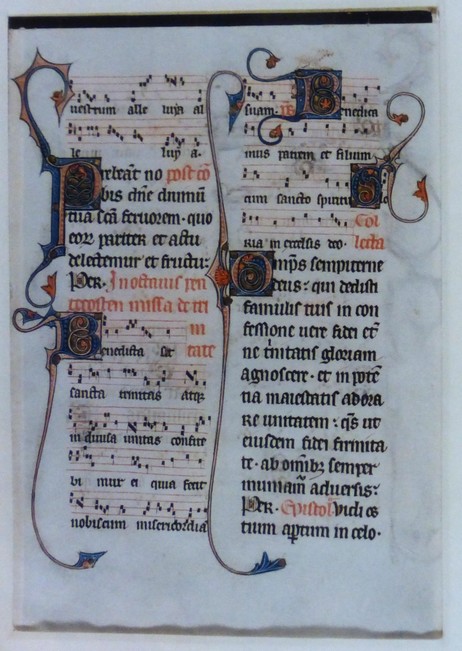 uestrum alle luya al
le luya.
Prebeat no post co
bis dne diuinu
tua sca feruorem. quo
eoz pariter et actu
delectemur et fructu.
Per. In octauis pen
tecosten missa de tri
ni
Benedicta sit tate
sancta trinitas atqz
indiuisa unitas confite
bi mur ei quia fecit
nobiscum misericordia
suam. Benedica
mus patrem et filium
cum sancto spiritu Glo
ria in excelsis deo. Col
lecta
Omps sempiterne
deus: qui dedisti
famulis tuis in con
fessione uere fidei et
ne trinitatis gloriam
agnoscere. et in pote
tia maiestatis adora
re unitatem: qs ut
eiusdem fidei firmita
te. ab omibz semper
muniam aduersis:
Per. Epistol. Vidi os
tium aptum in celo.